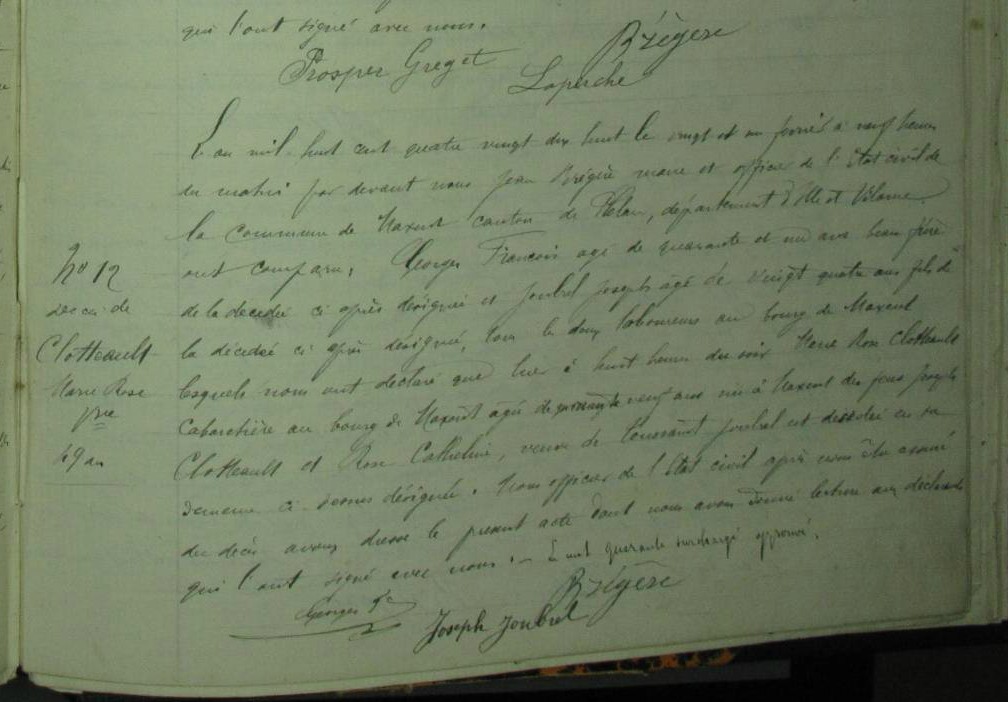 qui l'ont signé avec nous.
Prosper Greget Brégère
Laperche
L'an mil huit cent quatre vingt dix huit le vingt et un février à neuf heures
du matin par devant nous Jean Brégère maire et officier de l'Etat civil de
la commune de Maxent canton de Plélan, département d'Ille et Vilaine
ont comparu, Georges Francois agé de quarante et un ans beau frère
de la décedée ci après désignée et Joubrel Joseph âgé de vingt quatre ans fils de
la décédée ci après désignée, tous les deux laboureurs au bourg de Maxent
lesquels nous ont déclaré que hier à huit heures du soir Marie Rose Clotteault
cabaretière au bourg de Maxent agée de quarante neuf ans née à Maxent des feus Joseph
Clotteault et Rose Catheline, veuve de Toussaint Joubrel est décédée en sa
demeure ci dessus désignée. Nous officier de l'Etat civil après nous être assuré
du décès avons dressé le présent acte dont nous avons donné lecture aux déclarants
qui l'ont signé avec nous. – Le mot quarante surchargé approuvé.
Georges Fc Brégère
Joseph Joubrel
No 12
décès de
Clotteault
Marie Rose
49 an